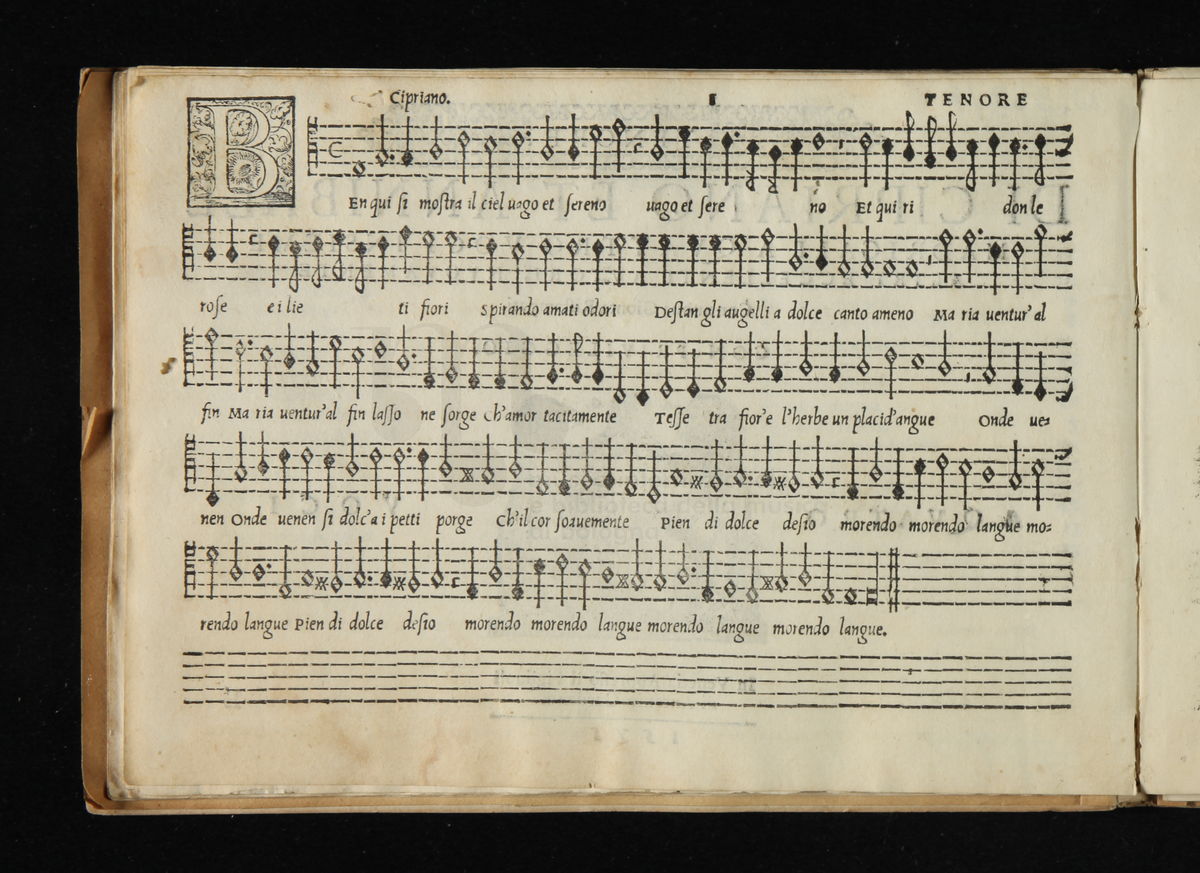 Cipriano. I TENORE
BEn qui si mostra il ciel uago et sereno uago et sere no Et qui ri don le
rose e i lie ti fiori Spirando amati odori Destan gli augelli a dolce canto ameno Ma ria uentur' al
fin Ma ria uentur'al fin lasso ne sorge Ch'amor tacitamente Tesse tra fior'e l'herbe un placid'angue Onde ue=
nen Onde uenen si dolc'a i petti porge Ch'il cor soauemente Pien di dolce desio morendo morendo langue mo=
rendo langue Pien di dolce desio morendo morendo langue morendo langue morendo langue.